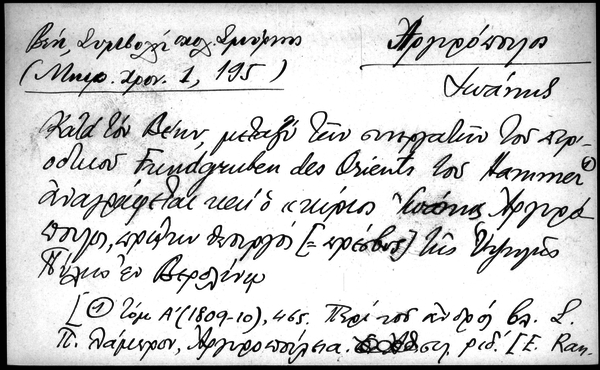 Βέη, Συμβολή σχολ. Σμύρνης
(Μικρ. Χρον. 1, 195)
Ἀργυρόπουλος
Ἰωάννης
Κατά τόν Βέην, μεταξύ τῶν συνεργατῶν τοῦ περι-
οδικοῦ Fundgruben des Orients τοῦ Hammer ①
ἀναγράφεται καί ὁ κύριος Ἰωάννης Ἀργυρό
πουλος, πρώην [= πρέσβυς] τῆς Ὑψηλῆς
Πύλης ἐν Βερολίνῳ
[① τόμ. Α' (1809-10), 465. Περί τοῦ ἀνδρός βλ. Σ.
Π. Λάμπρον, Ἀργυροπούλεια. σελ. ριδ'. [Ε. Ran.